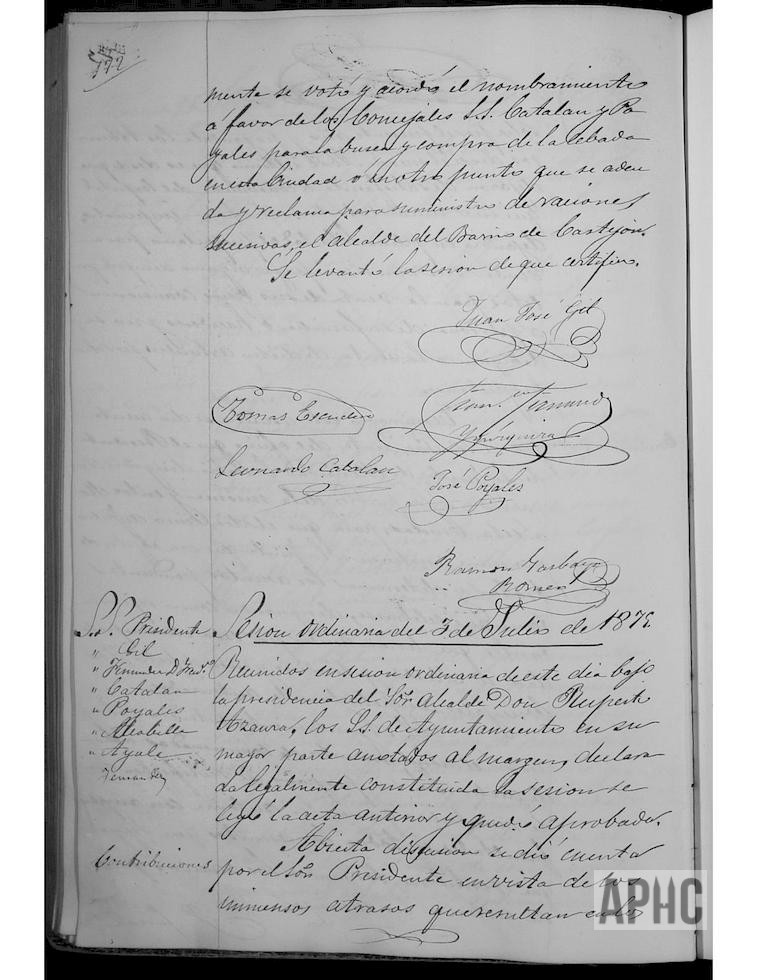 172
mente se votó y acordó el nombramiento
a favor de los Concejales S.S. Catalan y Po
yales para la busca y compra de la cebada
en esta Ciudad ó en otro punto que se adeu
da y reclama para suministro de raciones
sucesivas, el alcalde del Barrio de Castejon.
Se levantó la sesion de que certifico.
Juan José Gil
Tomas Escudero
Leonardo Catalan
José Poyales
Ramon
Romeo
S.S. Presidente
" Gil
" Fernandez D. Fran.co
" Catalan
" Poyales
" Mirabella
" Ayala
Fernandez
Sesion ordinaria del 3 de Julio de 187
Reunidos en sesion ordinaria de este dia bajo
la presidencia del Sor Alcalde Don Ruperto
Azaura, los S.S. de Ayuntamiento en su
mayor parte anotados al margen, declara
da legalmente constituida la sesion se
leyó la acta anterior y quedó aprobada.
Contribuciones
Abierta discusion se dió cuenta
por el Sor Presidente en vista de los
inmensos atrasos que resultan en los
APHC